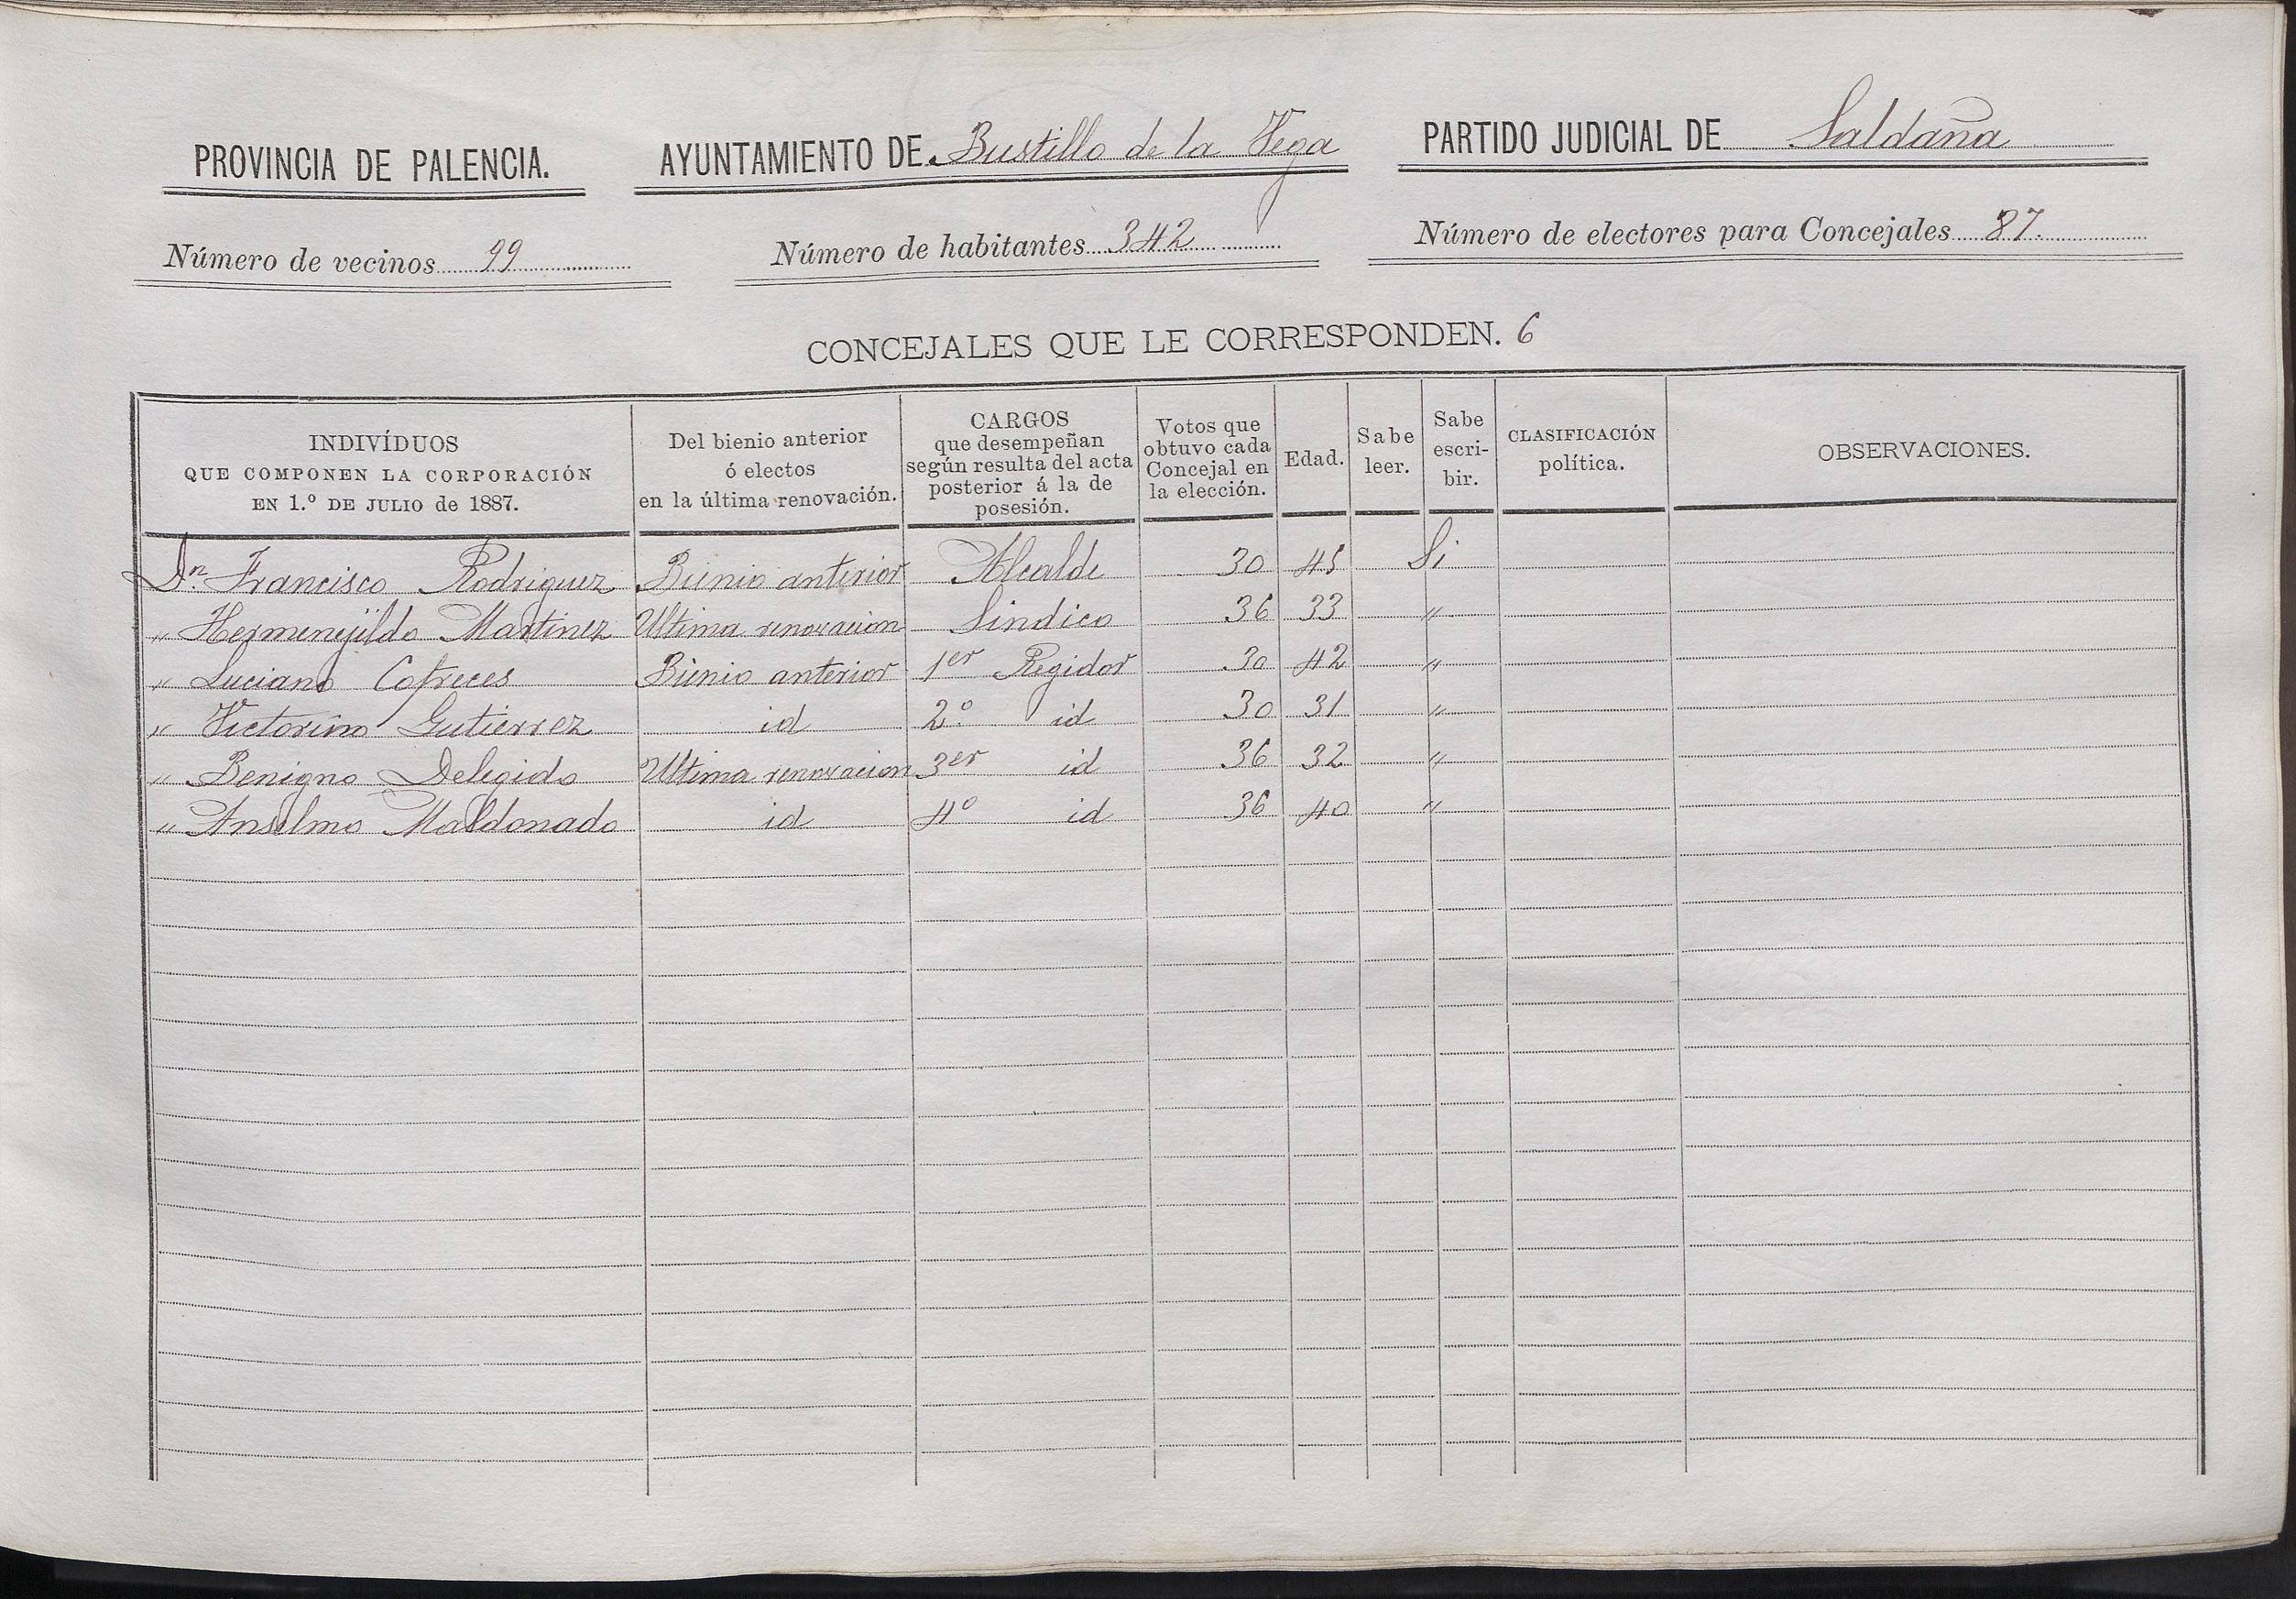 PROVINCIA DE PALENCIA. AYUNTAMIENTO DE Bustillo de la Vega PARTIDO JUDICIAL DE Saldaña
Número de vecinos 99 Número de habitantes 342 Número de electores para Concejales 87.
CONCEJALES QUE LE CORRESPONDEN. 6
INDIVÍDUOS
QUE COMPONEN LA CORPORACIÓN
EN 1.º DE JULIO de 1887.
Del bienio anterior
ó electos
en la última renovación.
CARGOS
que desempeñan
según resulta del acta
posterior á la de
posesión.
Votos que
obtuvo cada
Concejal en
la elección.
Edad.
Sabe
leer.
Sabe
escri-
bir.
CLASIFICACIÓN
política.
OBSERVACIONES.
Dn. Francisco Rodriguez Bienio anterior Alcalde 30 45 Si
" Hermenejildo Martinez Ultima renovacion Sindico 36 33 "
" Luciano Cofreces Bienio anterior 1er Regidor 30 42 "
" Victorino Gutierrez id 2º id 30 31 "
" Benigno Delegido Ultima renovacion 3er id 36 32 "
" Anselmo Maldonado id 4º id 36 40 "